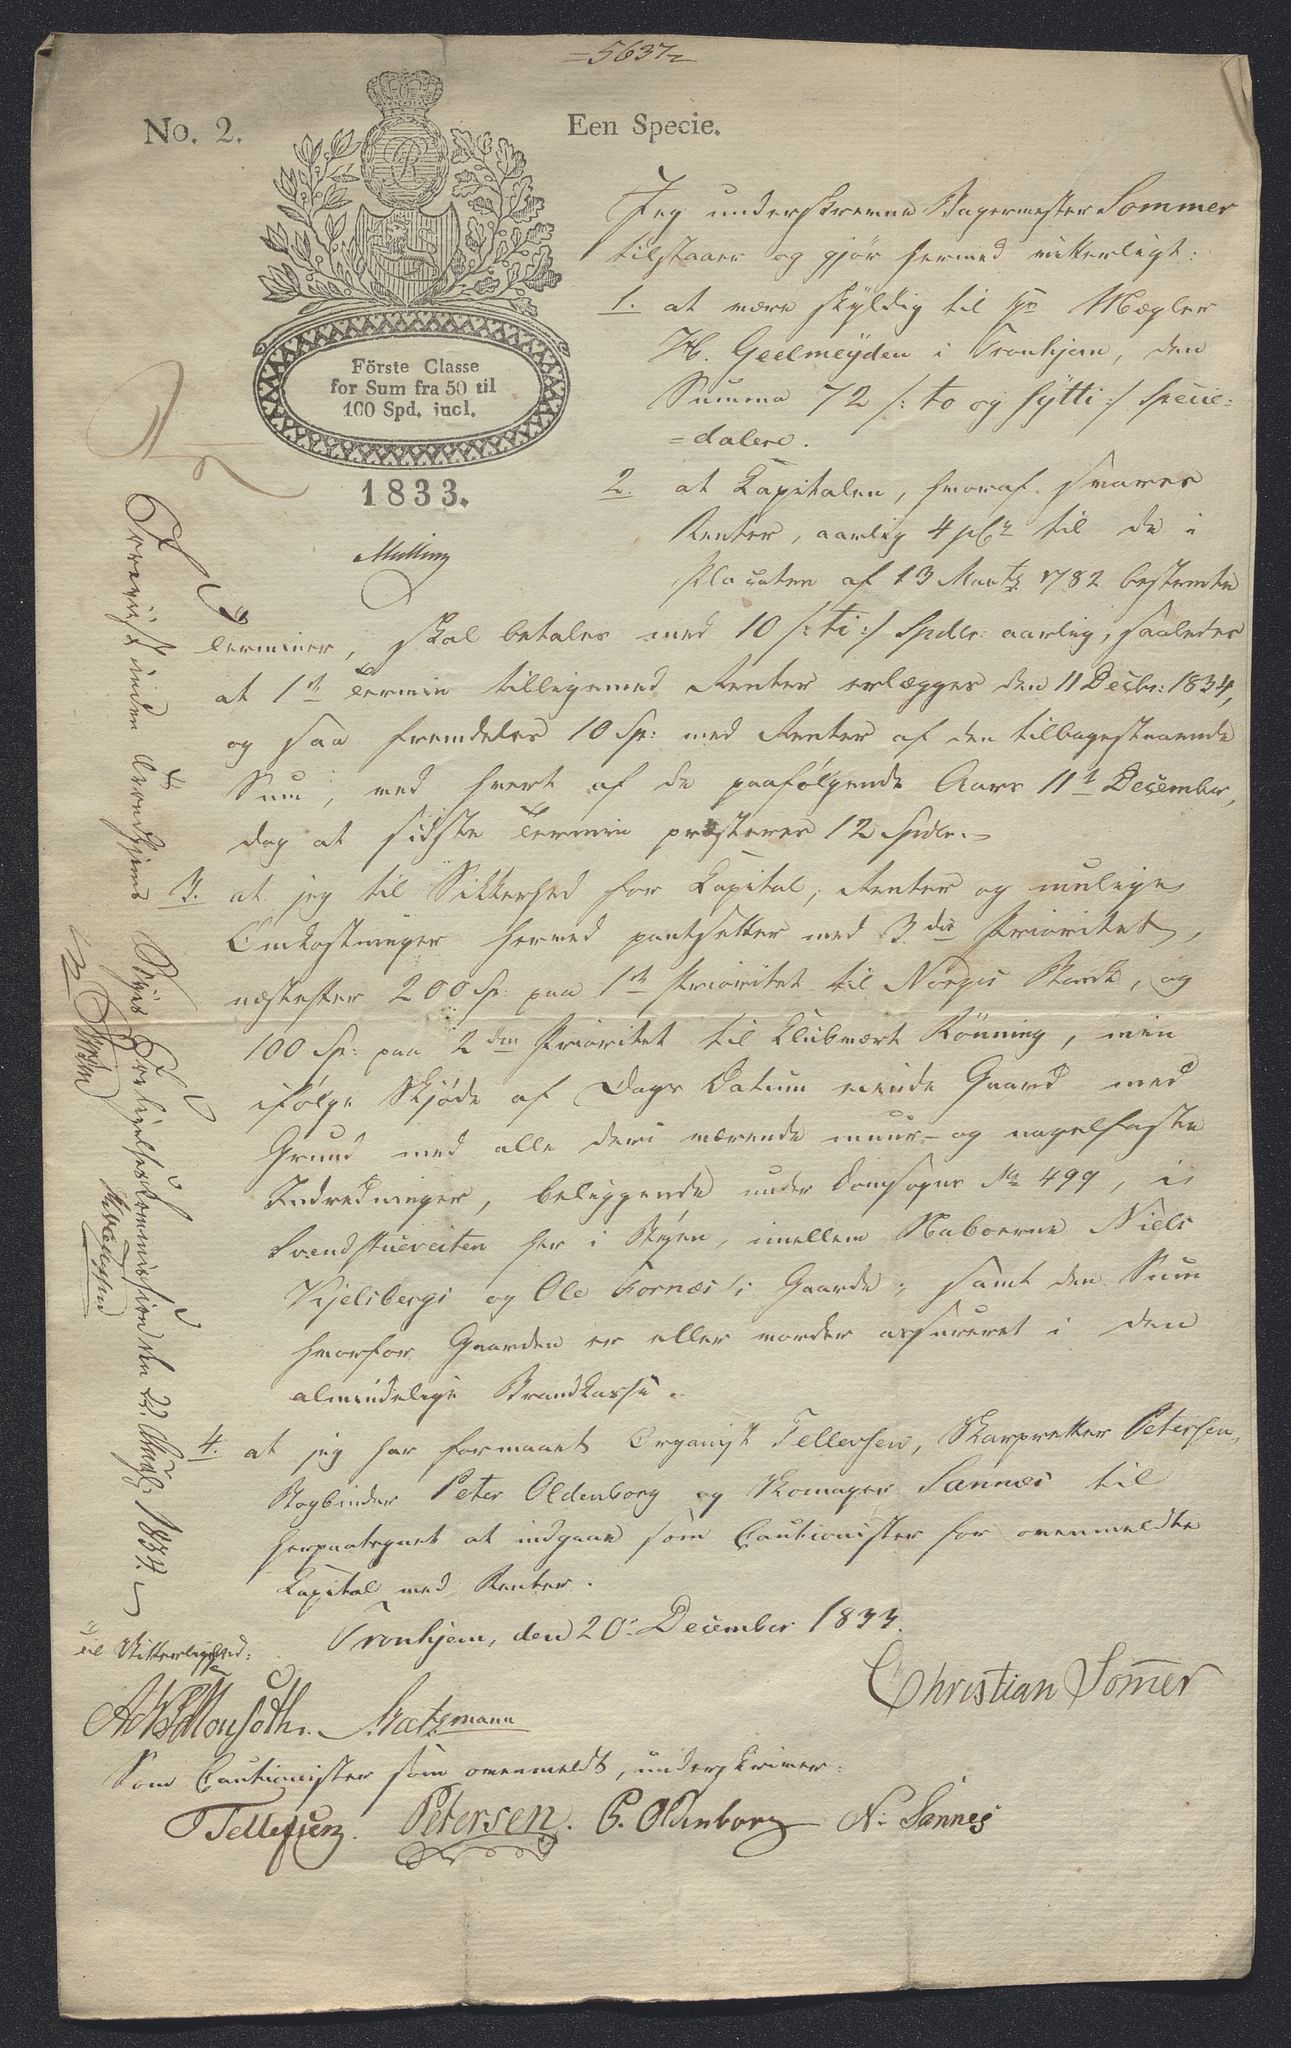 =5637=
No. 2.
Een Specie.
Förste Classe
for Sum fra 50 til
100 Spd. incl.
1833.
Jeg underskrevne Bagermester Sommer
tilstaaer og gjør hermed vitterligt:
1. at være skyldig til Hr Mægler
H. Geelmeyden i Tronhjem, den
Summa 72 /: to og sytti :/ Specie-
=dalere.
2. at Kapitalen, hvoraf svares
Renter, aarlig 4 pCt til de i
Placaten af 13 Marts 1782 bestemte
Terminer, skal betales med 10 /: ti :/ Spdlr: aarlig, saaledes
at 1ste Termin tilligemed Renter erlægges den 11 Decbr: 1834,
og saa fremdeles 10 Sp: med Renter af den tilbagestaaende
Sum, med hvert af de paafølgende Aars 11te December,
dog at sidste Termin præsteres 12 Spdlr.
3. at jeg til Sikkerhed for Kapital, Renter og mulige
Omkostninger herved pantsætter med 3die Prioritet,
næstefter 200 Sp: paa 1ste Prioritet til Norges Bank, og
100 Sp: paa 2den Prioritet til Klubvært Rönning, min
ifølge Skjøde af Dags Datum eiende Gaard med
Grund med alle deri værende muur- og nagelfaste
Indredninger, beliggende under Domsogns No 499, i
Svendstueveiten her i Byen, imellem Naboerne Niels
Kjelsbergs og Ole Fornæs's Gaarde, samt den Sum
hvorfor Gaarden er eller vorder assureret i den
almindelige Brandkasse.
4. at jeg har formaaet Organist Tellefsen, Skarpretter Petersen,
Bogbinder Peter Oldenborg og Skomager Sannes til
herpaategnet at indgaae som Cautionister for ovenmeldte
Kapital med Renter.
Tronhjem, den 20de December 1833.
Christian Sommer
Til Vitterlighed:
Matzmann
Som Cautionister som ovenmeldt, underskriver:
Tellefsen. Petersen. P. Oldenborg N. Sannes
Foreviist inden Trondhjems Byes Forligelsescommission den 22. 1834.